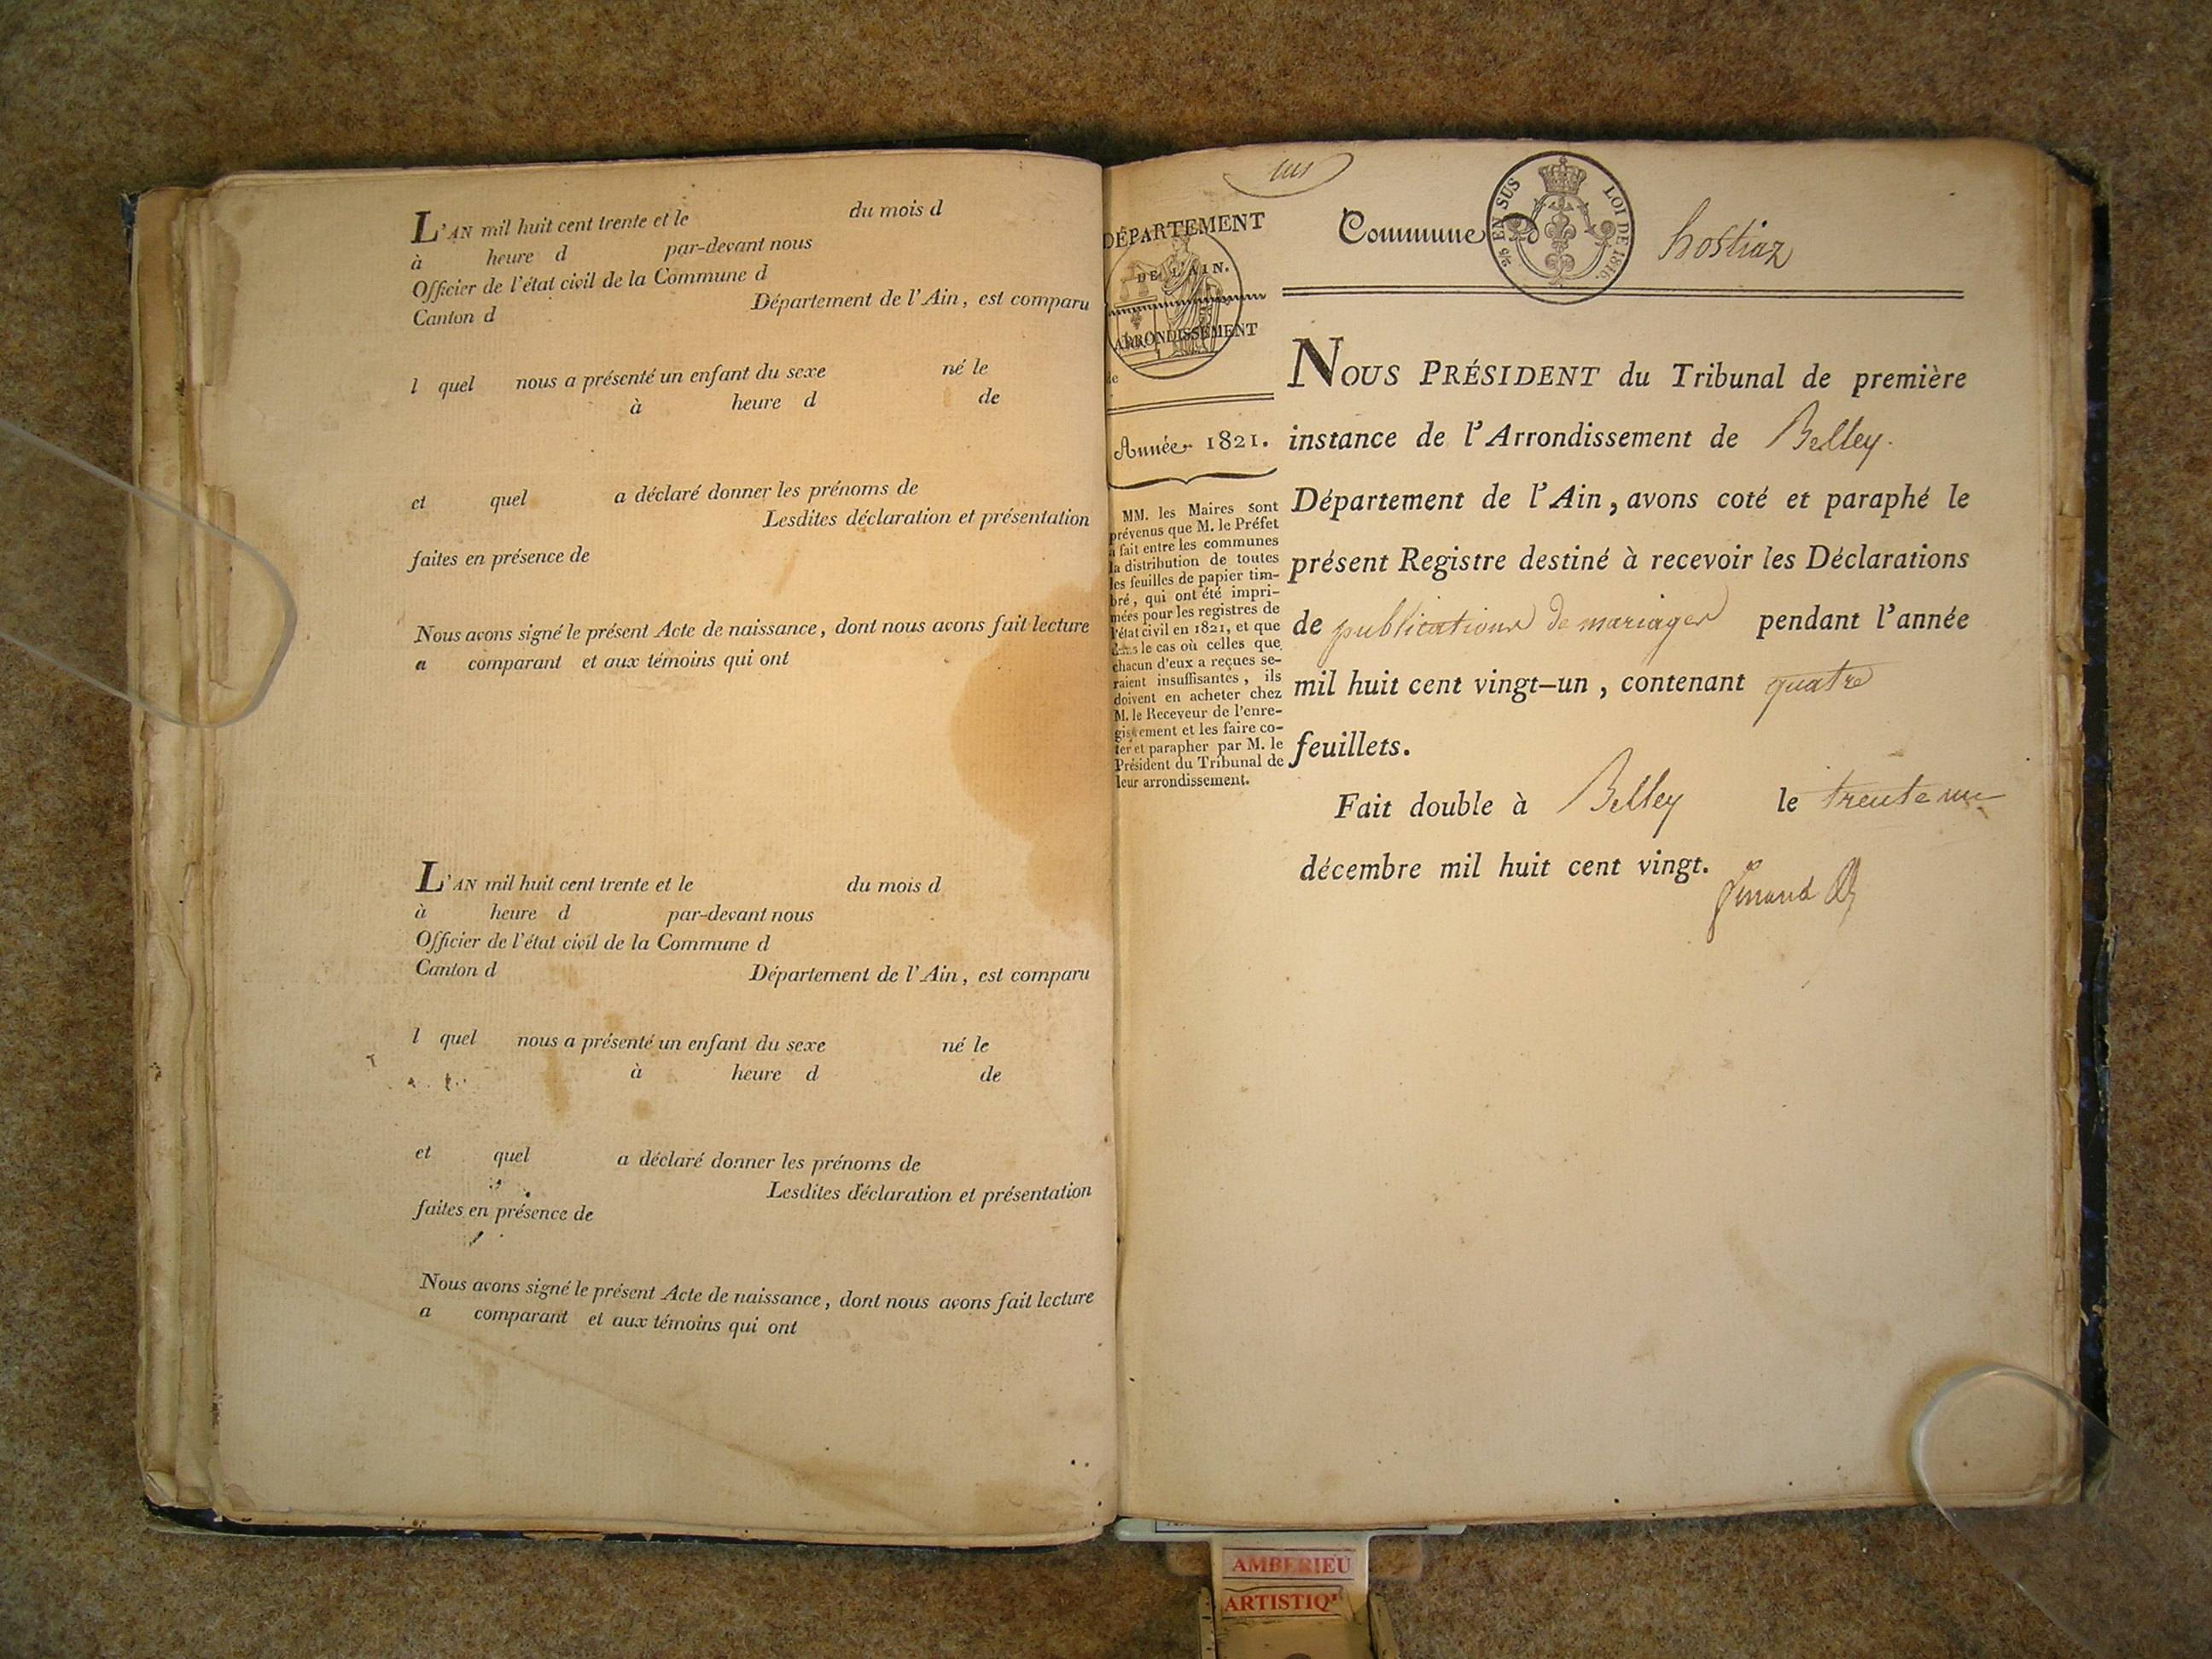 L'AN mil huit cent trente et le du mois d
à heure d par-devant nous
Officier de l'état civil de la Commune d
Canton d Département de l'Ain, est comparu
l quel nous a présenté un enfant du sexe né le
à heure d de
et quel a déclaré donner les prénoms de
Lesdites déclaration et présentation
faites en présence de
Nous avons signé le présent Acte de naissance, dont nous avons fait lecture
a comparant et aux témoins qui ont
L'AN mil huit cent trente et le du mois d
à heure d par-devant nous
Officier de l'état civil de la Commune d
Canton d Département de l'Ain, est comparu
l quel nous a présenté un enfant du sexe né le
à heure d de
et quel a déclaré donner les prénoms de
Lesdites déclaration et présentation
faites en présence de
Nous avons signé le présent Acte de naissance, dont nous avons fait lecture
a comparant et aux témoins qui ont
DÉPARTEMENT
DE L'AIN.
ARRONDISSEMENT
de
Année 1821.
MM. les Maires sont
prévenus que M. le Préfet
a fait entre les communes
la distribution de toutes
les feuilles de papier tim-
bré, qui ont été impri-
mées pour les registres de
l'état civil en 1821, et que
dans le cas où celles que
chacun d'eux a reçues se-
raient insuffisantes, ils
doivent en acheter chez
M. le Receveur de l'enre-
gistrement et les faire co-
ter et parapher par M. le
Président du Tribunal de
leur arrondissement.
Commune d hostiaz
EN SUS LOI DE 1816.
NOUS PRÉSIDENT du Tribunal de première
instance de l'Arrondissement de Belley.
Département de l'Ain, avons coté et paraphé le
présent Registre destiné à recevoir les Déclarations
de publications de mariages pendant l'année
mil huit cent vingt-un, contenant quatre
feuillets.
Fait double à Belley le trente un
décembre mil huit cent vingt.
AMBERIEU
ARTISTIQ